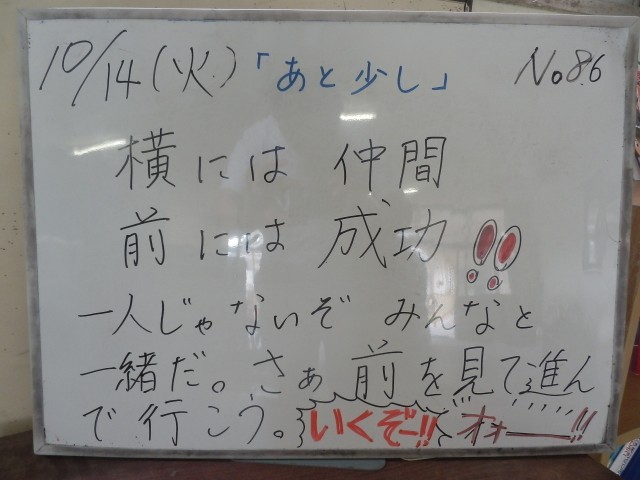 10/14(火)「あと少し」 No86
横には 仲間
前には 成功!!
一人じゃないぞ みんなと
一緒だ。さぁ 前を見て進ん
で行こう。いくぞー!! オォー!!!